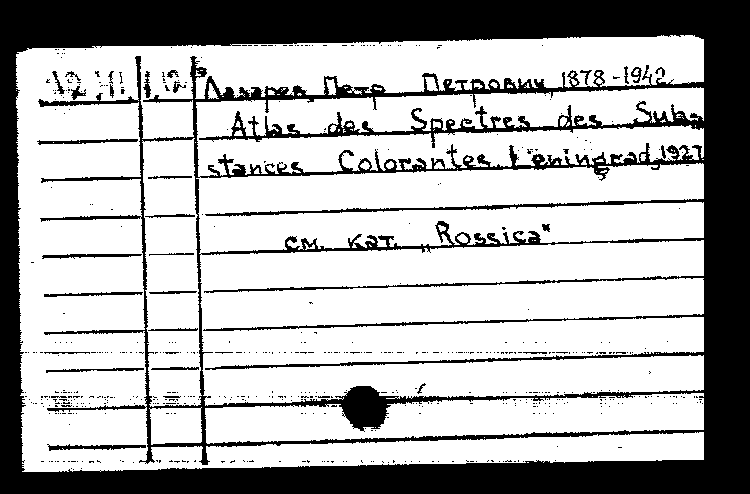 Лазарев, Петр Петрович, 1878-1942.
Atlas des Spectres des Subs
stances Colorantes. Leningrad, 1927
см. кат. „Rossica“